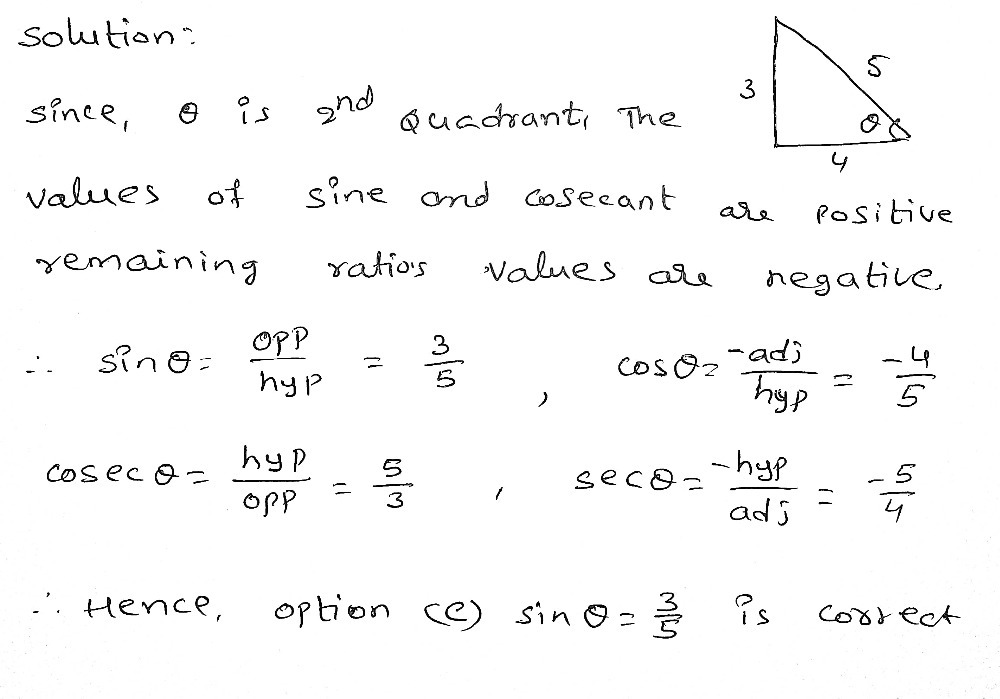 solution:
3
5
θ
4
since, θ is 2nd Quadrant, The
values of sine and cosecant are positive
remaining ratios values are negative.
∴ sinθ = opp/hyp = 3/5 , cosθ = -adj/hyp = -4/5
cosecθ = hyp/opp = 5/3 , secθ = -hyp/adj = -5/4
∴ Hence, option (c) sinθ = 3/5 is correct